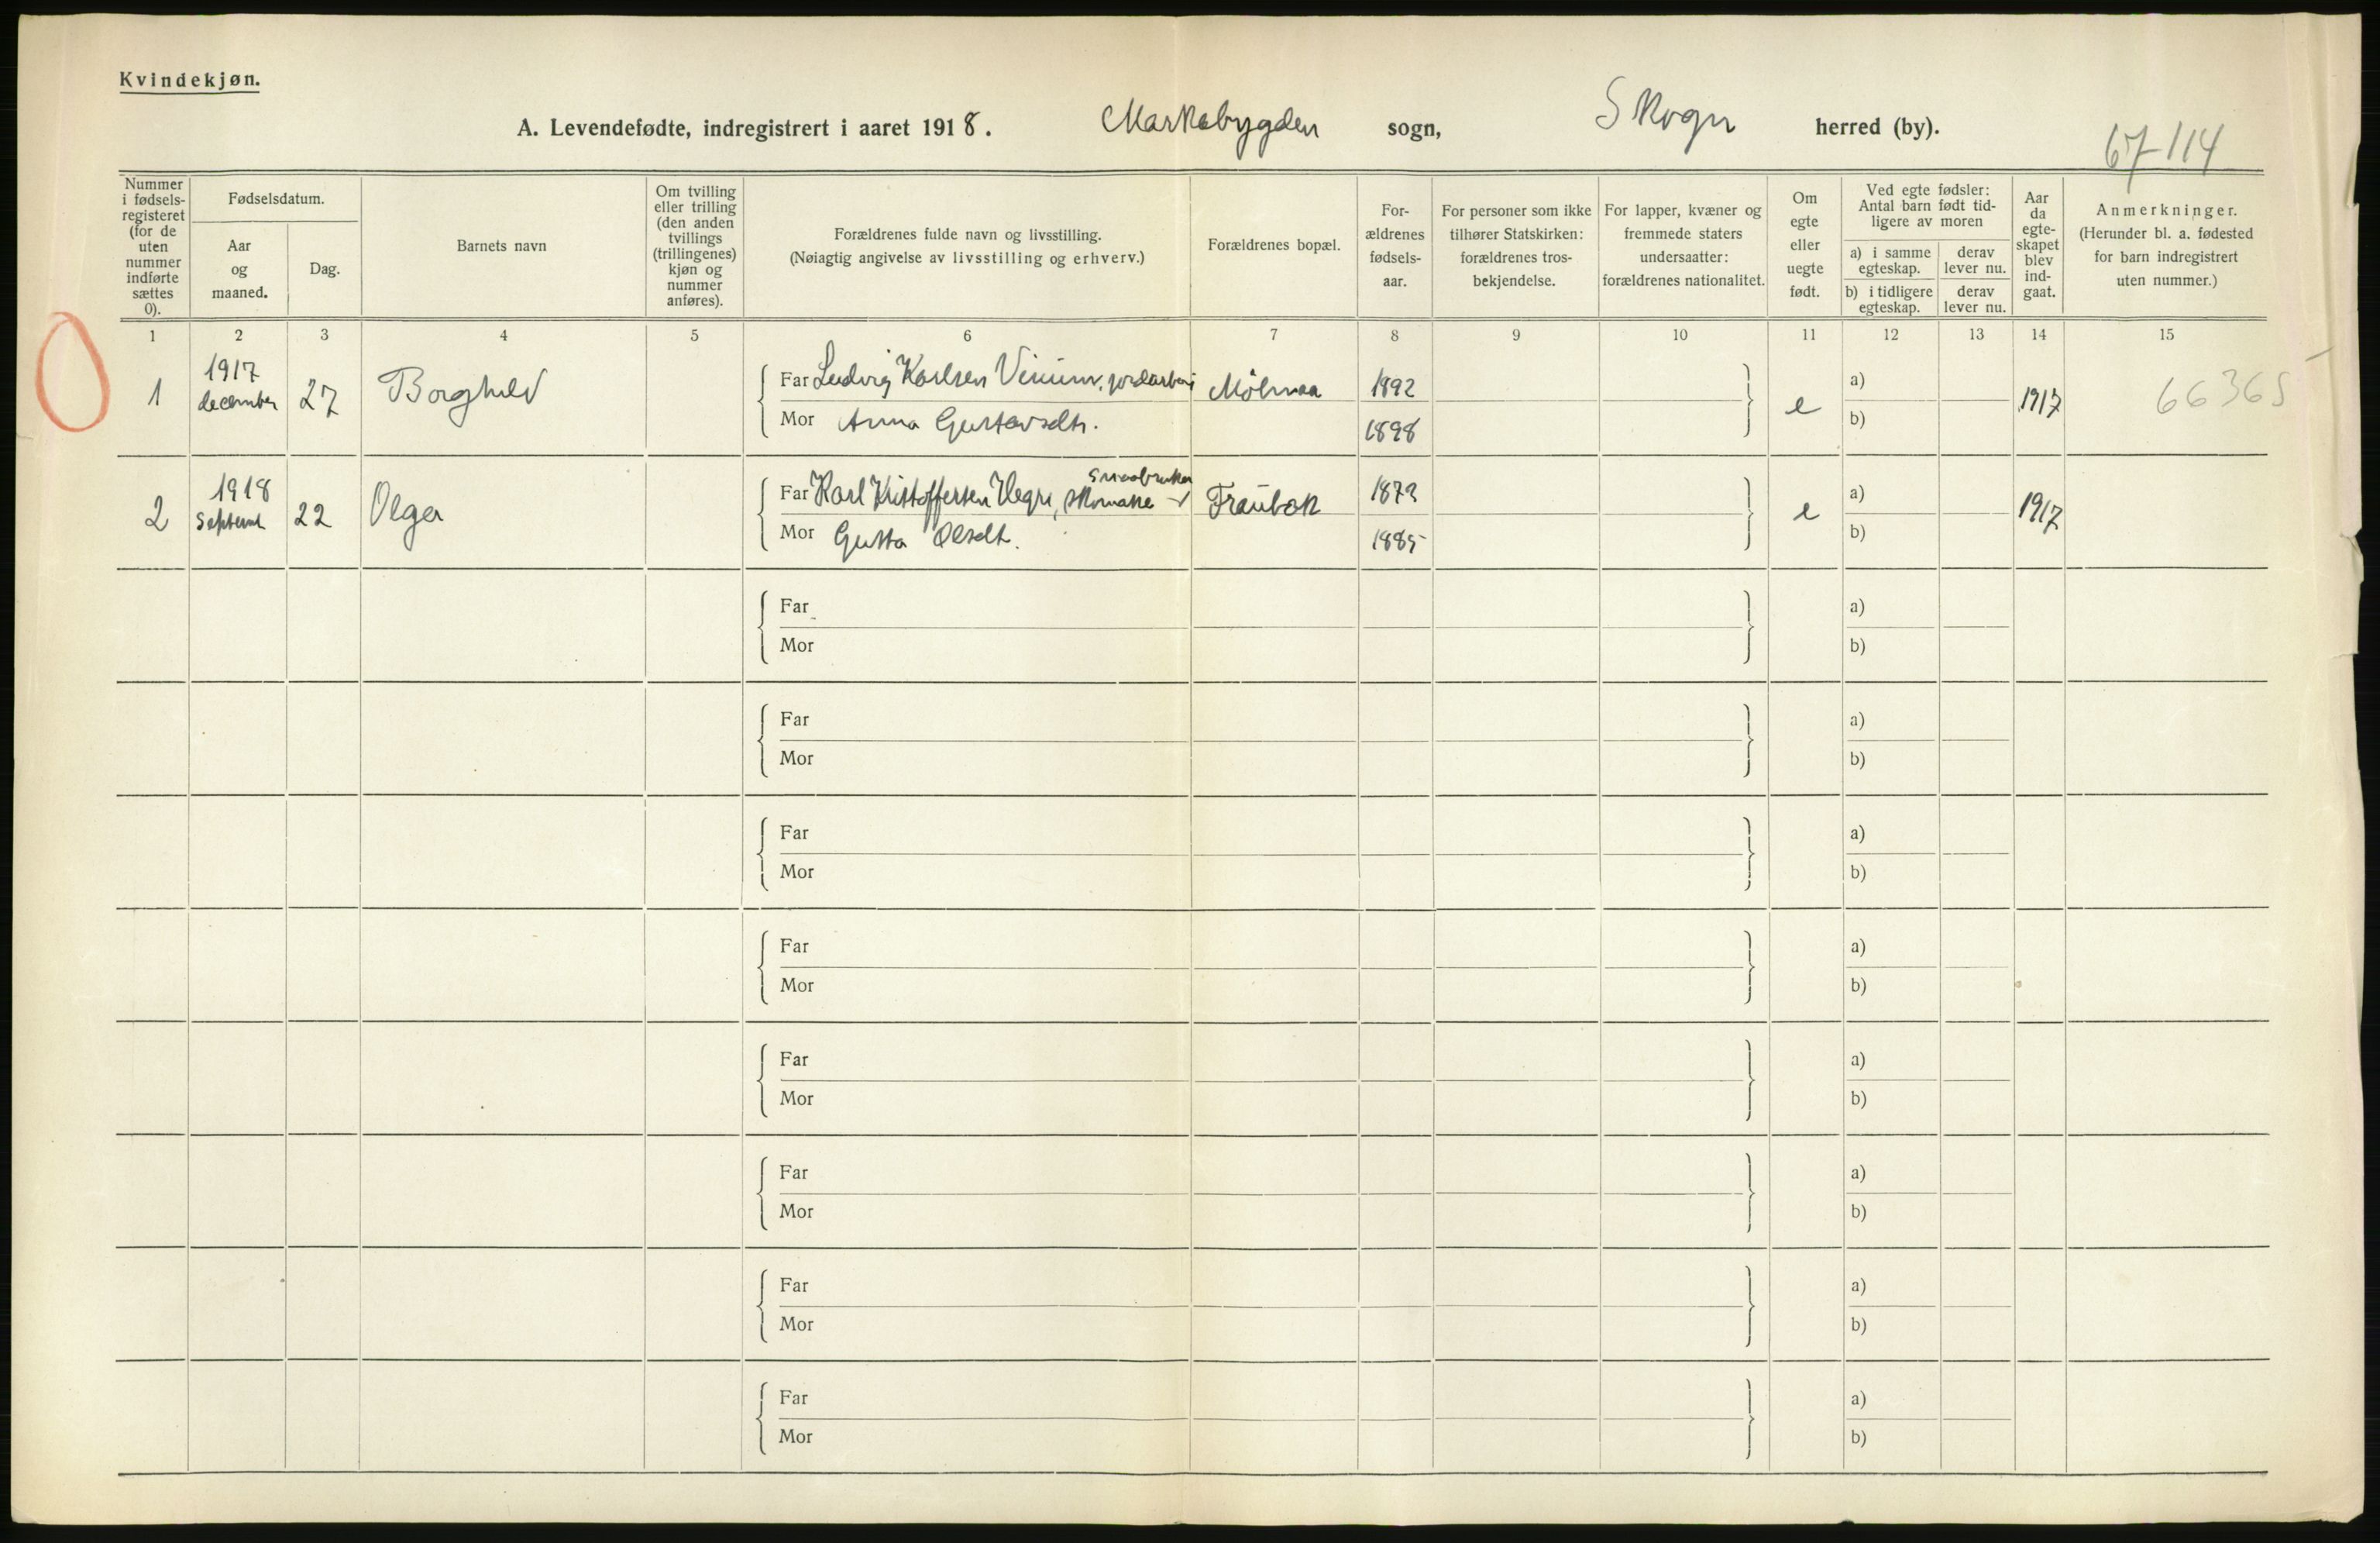 Kvindekjøn.
A. Levendefødte, indregistrert i aaret 1918. Markabygden sogn, Skogn herred (by).
67-114
Nummer i fødsels-registeret (for de uten nummer indførte sættes 0).
Fødselsdatum.
Aar og maaned.
Dag.
Barnets navn
Om tvilling eller trilling (den anden tvillings (trillingenes) kjøn og nummer anføres).
Forældrenes fulde navn og livsstilling.
(Nøiagtig angivelse av livsstilling og erhverv.)
Forældrenes bopæl.
For-ældrenes fødsels-aar.
For personer som ikke tilhører Statskirken: forældrenes tros-bekjendelse.
For lapper, kvæner og fremmede staters undersaatter: forældrenes nationalitet.
Om egte eller uegte født.
Ved egte fødsler: Antal barn født tid-ligere av moren
a) i samme egteskap.
derav lever nu.
b) i tidligere egteskap.
derav lever nu.
Aar da egte-skapet blev ind-gaat.
Anmerkninger.
(Herunder bl. a. fødested for barn indregistrert uten nummer.)
1 2 3 4 5 6 7 8 9 10 11 12 13 14 15
1 1917 december 27 Borghild Far Ludvig Karlsen jordarbei Mølnaa 1892 e a) 1917 66365
Mor Anna Gustavsdtr. 1898 b)
Smaabruker
2 1918 Septemb 22 Olga Far Karl Kristoffersen Hegre, skomake Fraubæk 1873 e a) 1917
Mor Gusta Olsdt. 1885 b)
Far a)
Mor b)
Far a)
Mor b)
Far a)
Mor b)
Far a)
Mor b)
Far a)
Mor b)
Far a)
Mor b)
Far a)
Mor b)
Far a)
Mor b)